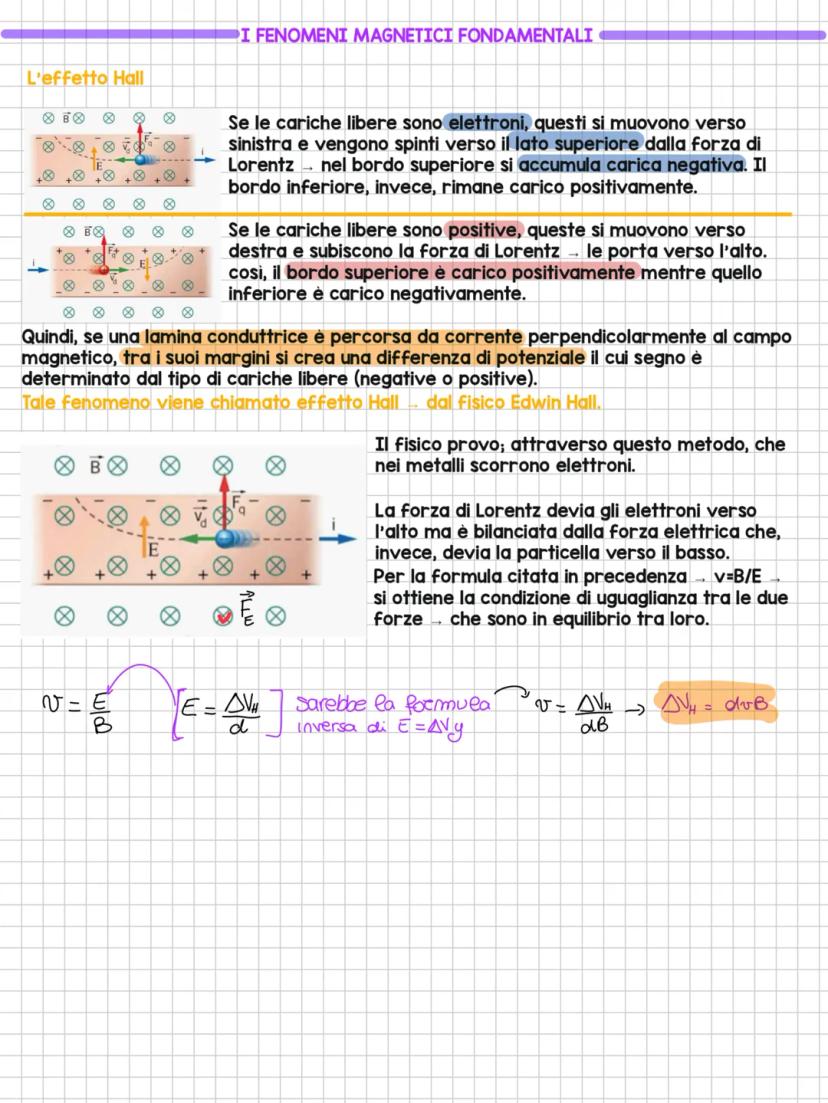 I FENOMENI MAGNETICI FONDAMENTALI
L'effetto Hall
Se le cariche libere sono elettroni, questi si muovono verso
sinistra e vengono spinti verso il lato superiore dalla forza di
Lorentz → nel bordo superiore si accumula carica negativa. Il
bordo inferiore, invece, rimane carico positivamente.
Se le cariche libere sono positive, queste si muovono verso
destra e subiscono la forza di Lorentz → le porta verso l'alto.
così, il bordo superiore è carico positivamente mentre quello
inferiore è carico negativamente.
Quindi, se una lamina conduttrice è percorsa da corrente perpendicolarmente al campo
magnetico, tra i suoi margini si crea una differenza di potenziale il cui segno è
determinato dal tipo di cariche libere (negative o positive).
Tale fenomeno viene chiamato effetto Hall → dal fisico Edwin Hall.
Il fisico provò; attraverso questo metodo, che
nei metalli scorrono elettroni.
La forza di Lorentz devia gli elettroni verso
l'alto ma è bilanciata dalla forza elettrica che,
invece, devia la particella verso il basso.
Per la formula citata in precedenza → v=B/E →
si ottiene la condizione di uguaglianza tra le due
forze → che sono in equilibrio tra loro.
B
F_q
v_d
i
E
F_E
v = E/B [E = ΔV_H/d] sarebbe la formula v = ΔV_H/dB → ΔV_H = dvB
inversa di E = ΔV y